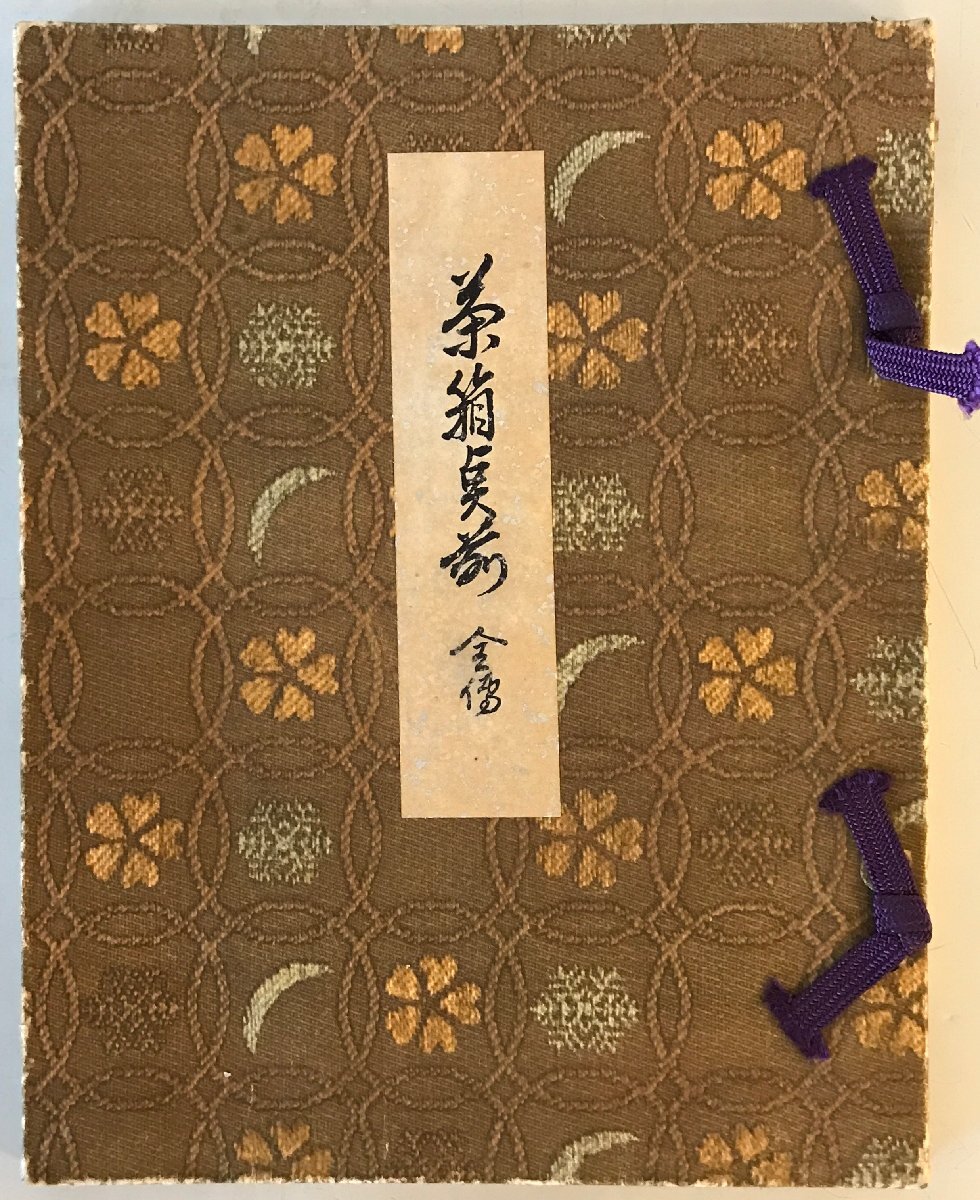 茶箱点前 全傳